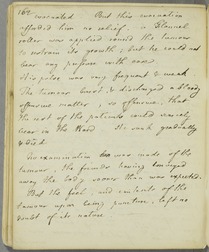 162
evacuated But this evacuation
afforded him no relief, a Flannel
roller was applied round the tumour
to restrain its growth; but he could not
bear any pressure with ease.
His pulse was very frequent & weak
The tumour burst & discharged a bloody
offensive matter; so offensive, that
the rest of the patients could scarcely
bear in the Ward. He sunk gradually
& died.
No examination was made of the
tumour, the friends having conveyed
away the body sooner than was expected.
But the feel, and contents of the
tumour upon being puncture, left no
doubt of its nature.